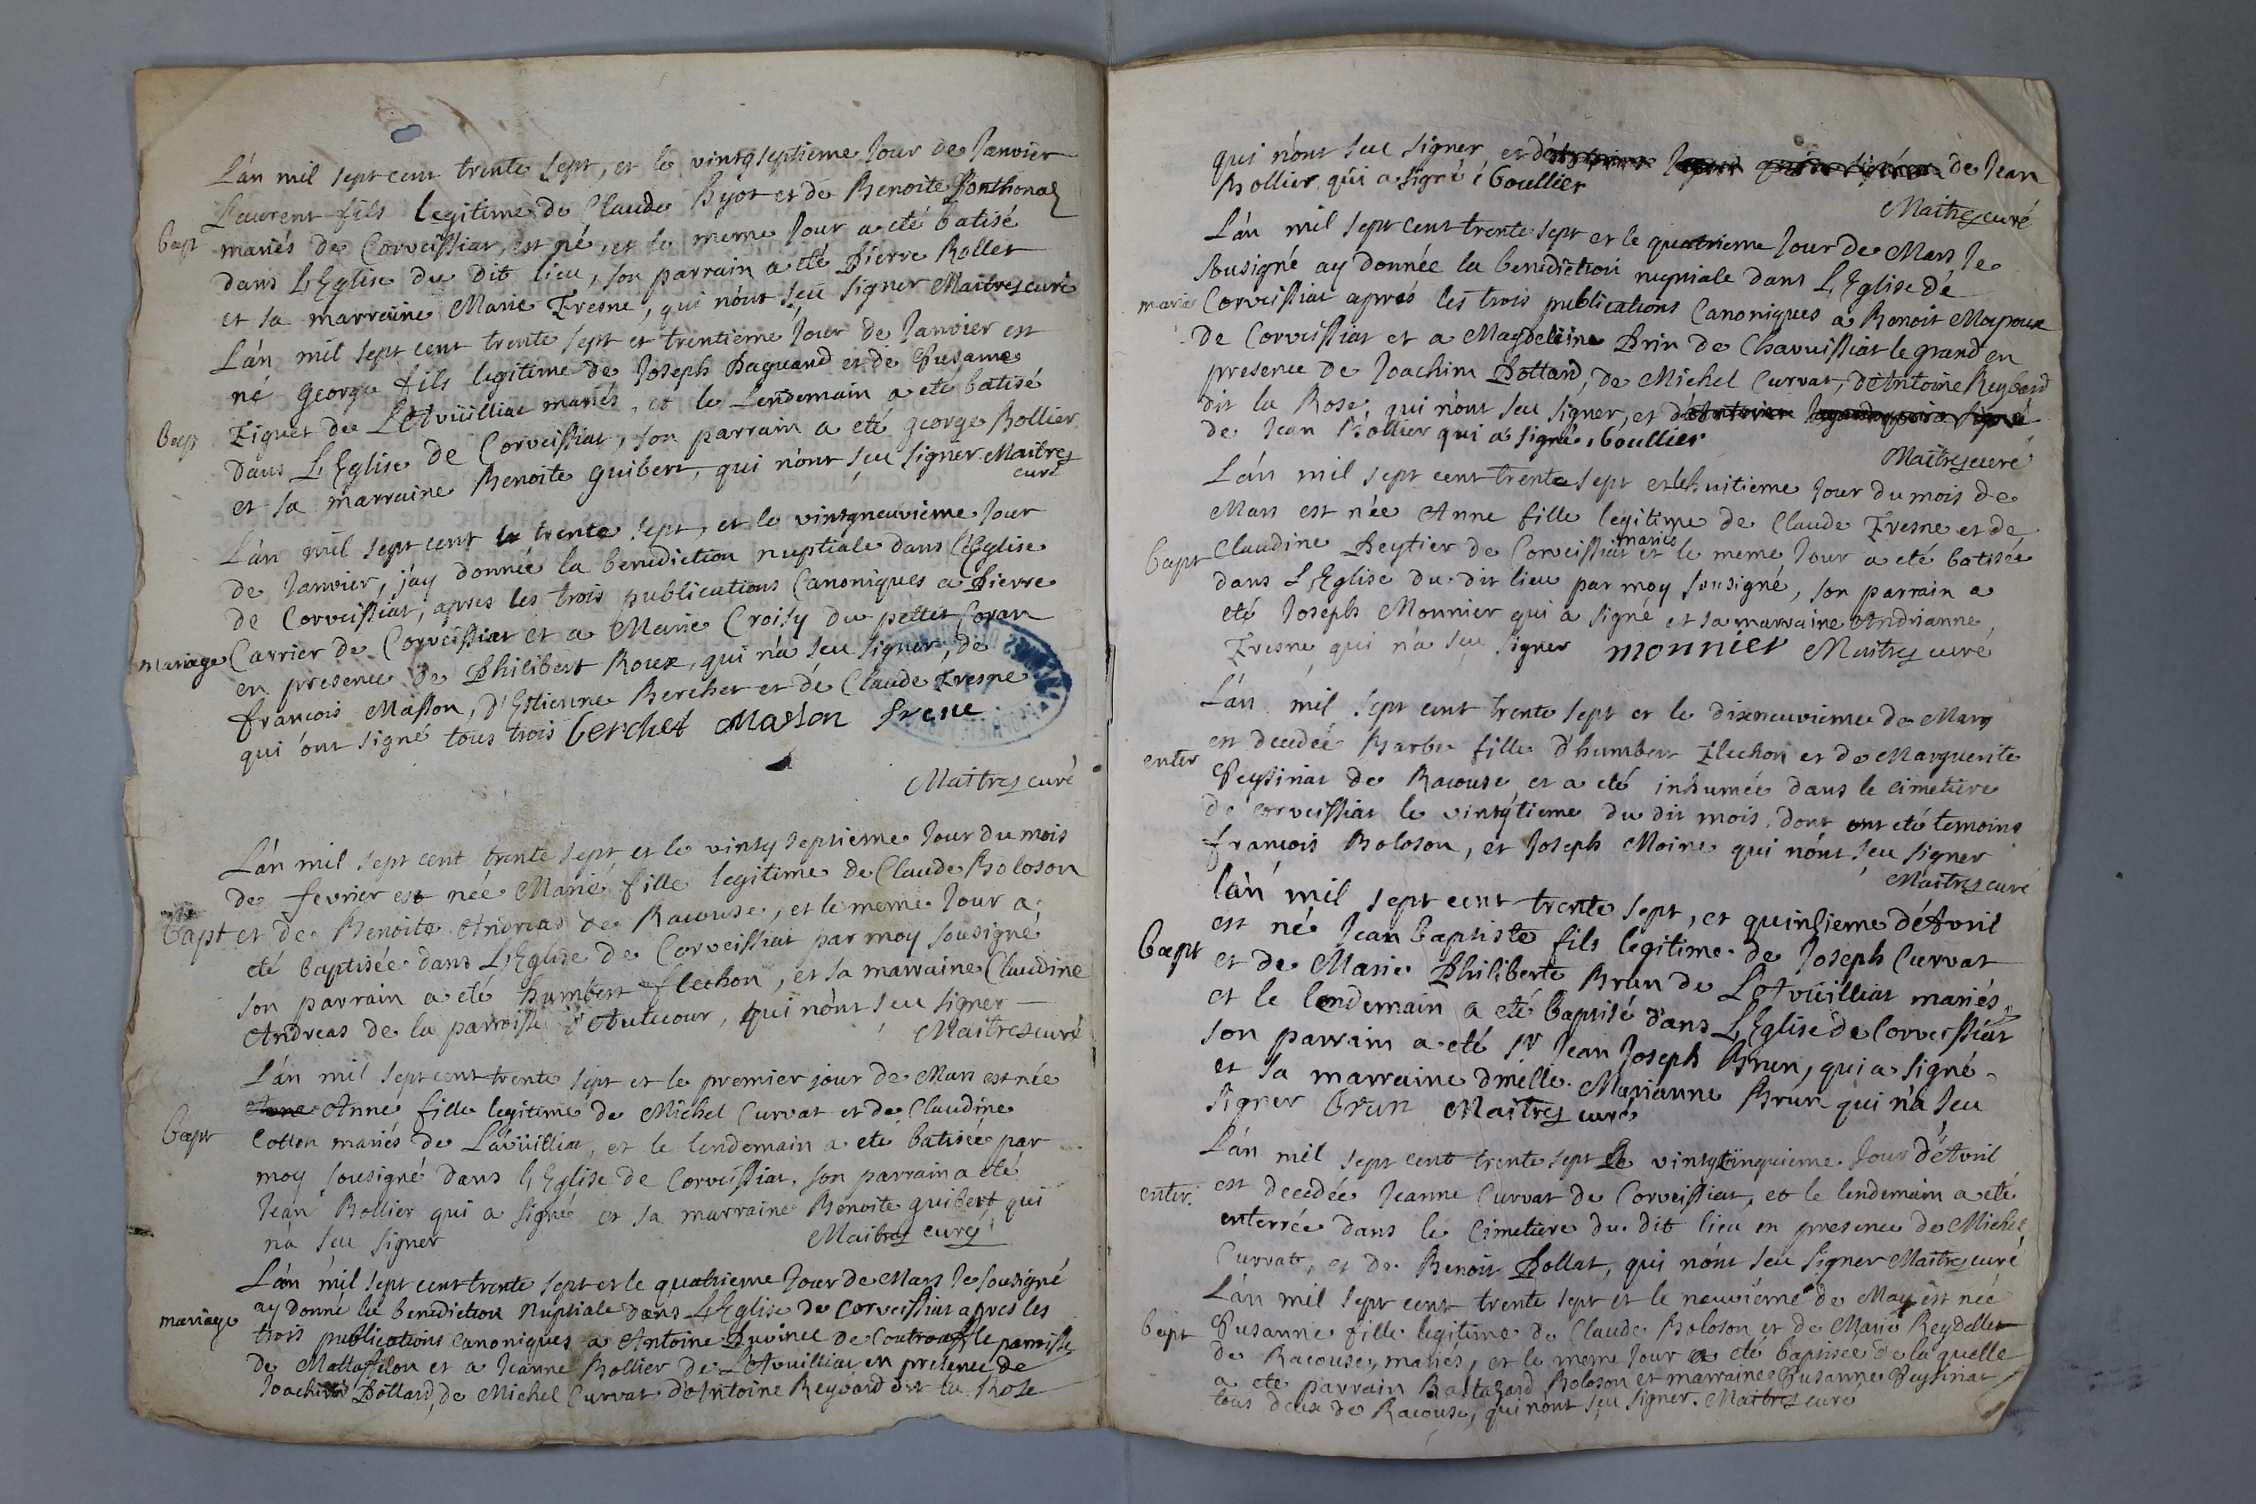 L'an mil sept cent trente sept, et le vintgseptieme Jour de Janvier
Laurent fils legitime de Claude Byot et de Benoite Ponthona
Bapt mariés de Corveissiat, est né, et le meme Jour a eté batisé
dans L'Eglise du dit lieu, son parrain a eté Pierre Rollet
et sa marreine Marie Fresne, qui n'ont seu signer Maitres curé
L'an mil sept cent trente sept et trentieme Jour de Janvier est
né george fils legitime de Joseph Paguand et de Susanne
Bapt Figuet de L'Avuilliat mariés, et le Lendemain a eté batisé
dans L'Eglise de Corveissiat, son parrain a eté george Bollier
et sa marraine Benoite guibert, qui n'ont seu signer Maitres
curé
L'an mil sept cent trente sept, et le vintgneuvieme Jour
de Janvier, j'ay donnée la benediction nuptiale dans l'Eglise
de Corveissiat, apres les trois publications Canoniques a Pierre
mariage Carrier de Corveissiat et a Marie Croisy du pettet Coran
en presence de Philibert Roux, qui n'a seu signer, de
francois Masson, d'Estienne Berchet et de Claude Fresne
qui ont signé tous trois berchet Masson frene
Maitres curé
L'an mil sept cent trente sept et le vintg septieme Jour du mois
de fevrier est née Marie fille legitime de Claude Boloson
Bapt et de Benoite Andreas de Racouse, et le meme Jour a
eté baptisée dans L'Eglise de Corveissiat par moy sousigné
son parrain a eté humbert flechon, et sa marraine Claudine
Andreas de la parroisse d'Autecour, qui n'ont seu signer
Maitres curé
L'an mil sept cent trente sept et le premier jour de Mars est née
Anne fille legitime de Michel Curvat et de Claudine
Bapt Cotton mariés de L'avüilliat, et le lendemain a eté batisée par
moy sousigné dans l'Eglise de Corveissiat, son parrain a eté
Jean Bollier qui a signé et sa marraine Benoite guibert qui
n'a seu signer Maitres curé
L'an mil sept cent trente sept et le quatrieme Jour de Mars Je sousigné
ay donné la benediction Nuptiale dans L'Eglise de Corveissiat apres les
mariage trois publications canoniques a Antoine Buvinet de parroisse
de Mattafelon et a Jeanne Bollier de L'Avuilliat en presence de
Joachim Pottard, de Michel Curvat d'Antoine Reybard dit la Rose
qui n'ont seu signer et de Jean
Bollier qui a signé boullier
Maitres curé
L'an mil sept cent trente sept et le quatrieme Jour de Mars Je
sousigné ay donnée la benediction nuptiale dans L'Eglise de
maria Corveissiat aprés les trois publications Canoniques a Benoit Mapoux
de Corveissiat et a Magdeleine Brin de Chavuissiat le grand en
presence de Joachim Pottard, de Michel Curvat, d'Antoine Reybard
dit la Rose, qui n'ont seu signer, et
de Jean Bollier qui a signé, boullier
Maitres curé
L'an mil sept cent trente sept et le huitieme Jour du mois de
Mars est née Anne fille legitime de Claude Fresne et de
mariés
Bapt Claudine Peytier de Corveissiat et le meme Jour a eté batisée
dans L'Eglise du dit lieu par moy sousigné, son parrain a
eté Joseph Monnier qui a signé et sa marraine Andrianne
Fresne qui n'a seu signer monnier Maitres curé
L'an mil sept cent trente sept et le dixneuvieme de Mars
est decedée Barbe fille d'humbert Flechon et de Marguerite
enter Peysiriat de Racouse, et a eté inhumée dans le cimetiere
de corveissiat le vintgtieme du dit mois, dont ont eté temoins
francois Boloson, et Joseph Moine qui n'ont seu signer
Maitres curé
l'an mil sept cent trente sept, et quinsieme d'Avril
est né Jean baptiste fils legitime de Joseph Curvat
Bapt et de Marie Philiberte Brun de L'Avüilliat mariés
et le lendemain a eté baptisé dans L'Eglise de Corveissiat
son parrain a eté sr Jean Joseph Brun, qui a signé
et sa marraine dmelle Marianne Brun qui n'a seu
signer Brun Maitres curé
L'an mil sept cent trente sept Le vintgcinquieme Jour d'Avril
enter. est decedée Jeanne Curvat de Corveissiat, et le lendemain a eté
enterrée dans le Cimetiere du dit lieu en presence de Michel
Curvat, et de Benoit Pollat, qui n'ont seu signer Maitres curé
L'an mil sept cent trente sept et le neuviéme de May est née
Bapt Susanne fille legitime de Claude Boloson et de Marie Reydellet
de Racouse, mariés, et le meme Jour a eté baptisée de la quelle
a eté parrain Baltazard Boloson et marraine Susanne Peysiriat
tous deux de Racouse, qui n'ont seu signer. Maitres curé